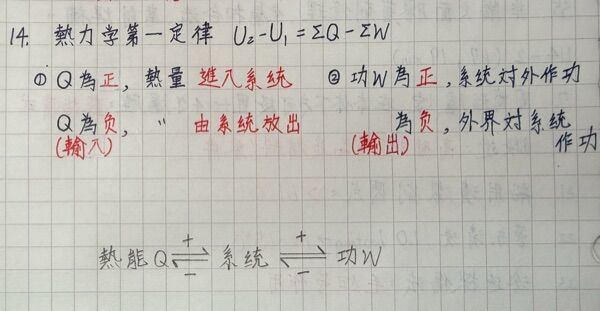 14. 熱力学第一定律 U₂-U₁=ΣQ-ΣW
① Q為正，熱量 進入系統 ② 功W為正，系統对外作功
Q為负，〃 由系統放出 為负，外界对系統作功
(輸入) (輸出)
熱能Q ⇌ 系統 ⇌ 功W
+ +
− −